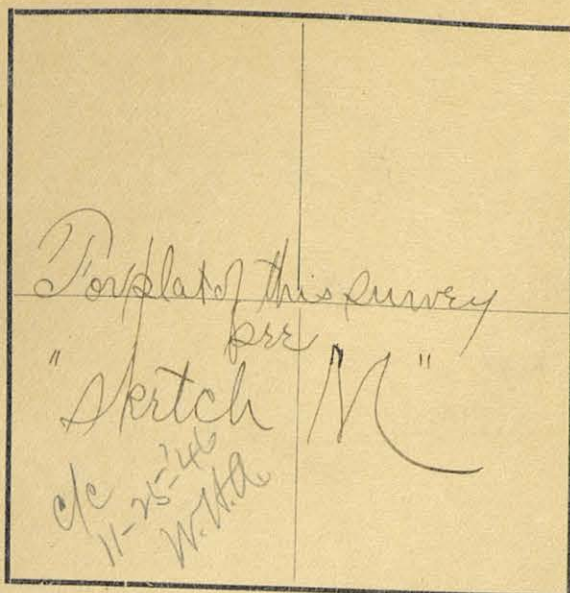 For plat of this survey
see
"Sketch M"
c/c
11-25-'46
W.H.A.